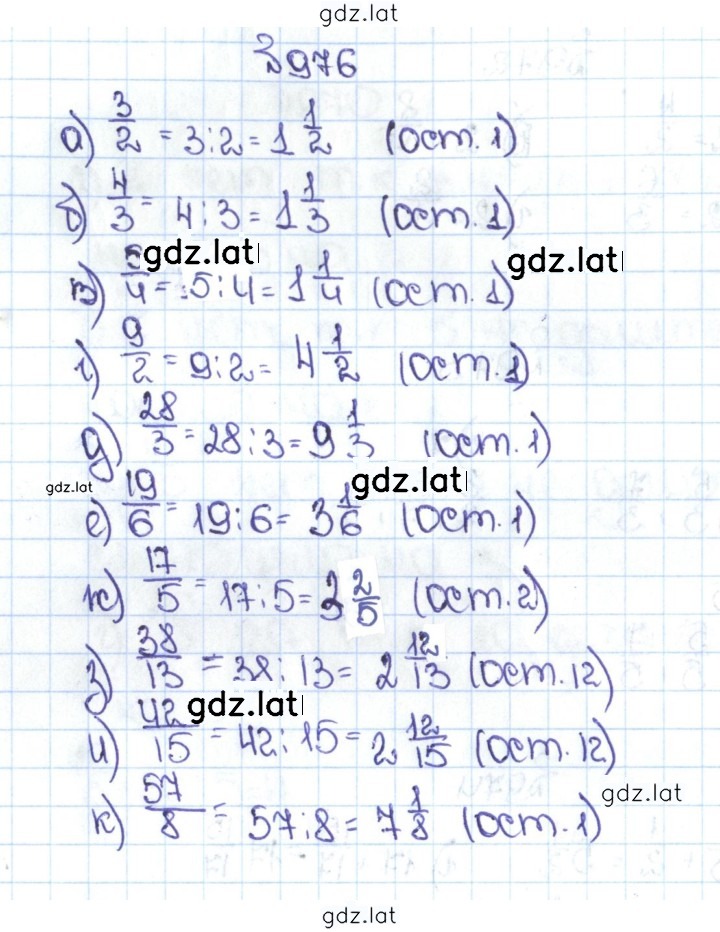 gdz.lat
№976
а) 3/2 = 3:2 = 1 1/2 (ост. 1)
б) 4/3 = 4:3 = 1 1/3 (ост. 1)
gdz.lat gdz.lat
в) 5/4 = 5:4 = 1 1/4 (ост. 1)
г) 9/2 = 9:2 = 4 1/2 (ост. 1)
д) 28/3 = 28:3 = 9 1/3 (ост. 1)
gdz.lat gdz.lat
е) 19/6 = 19:6 = 3 1/6 (ост. 1)
ж) 17/5 = 17:5 = 3 2/5 (ост. 2)
з) 38/13 = 38:13 = 2 12/13 (ост. 12)
gdz.lat
и) 42/15 = 42:15 = 2 12/15 (ост. 12)
gdz.lat
к) 57/8 = 57:8 = 7 1/8 (ост. 1)
gdz.lat